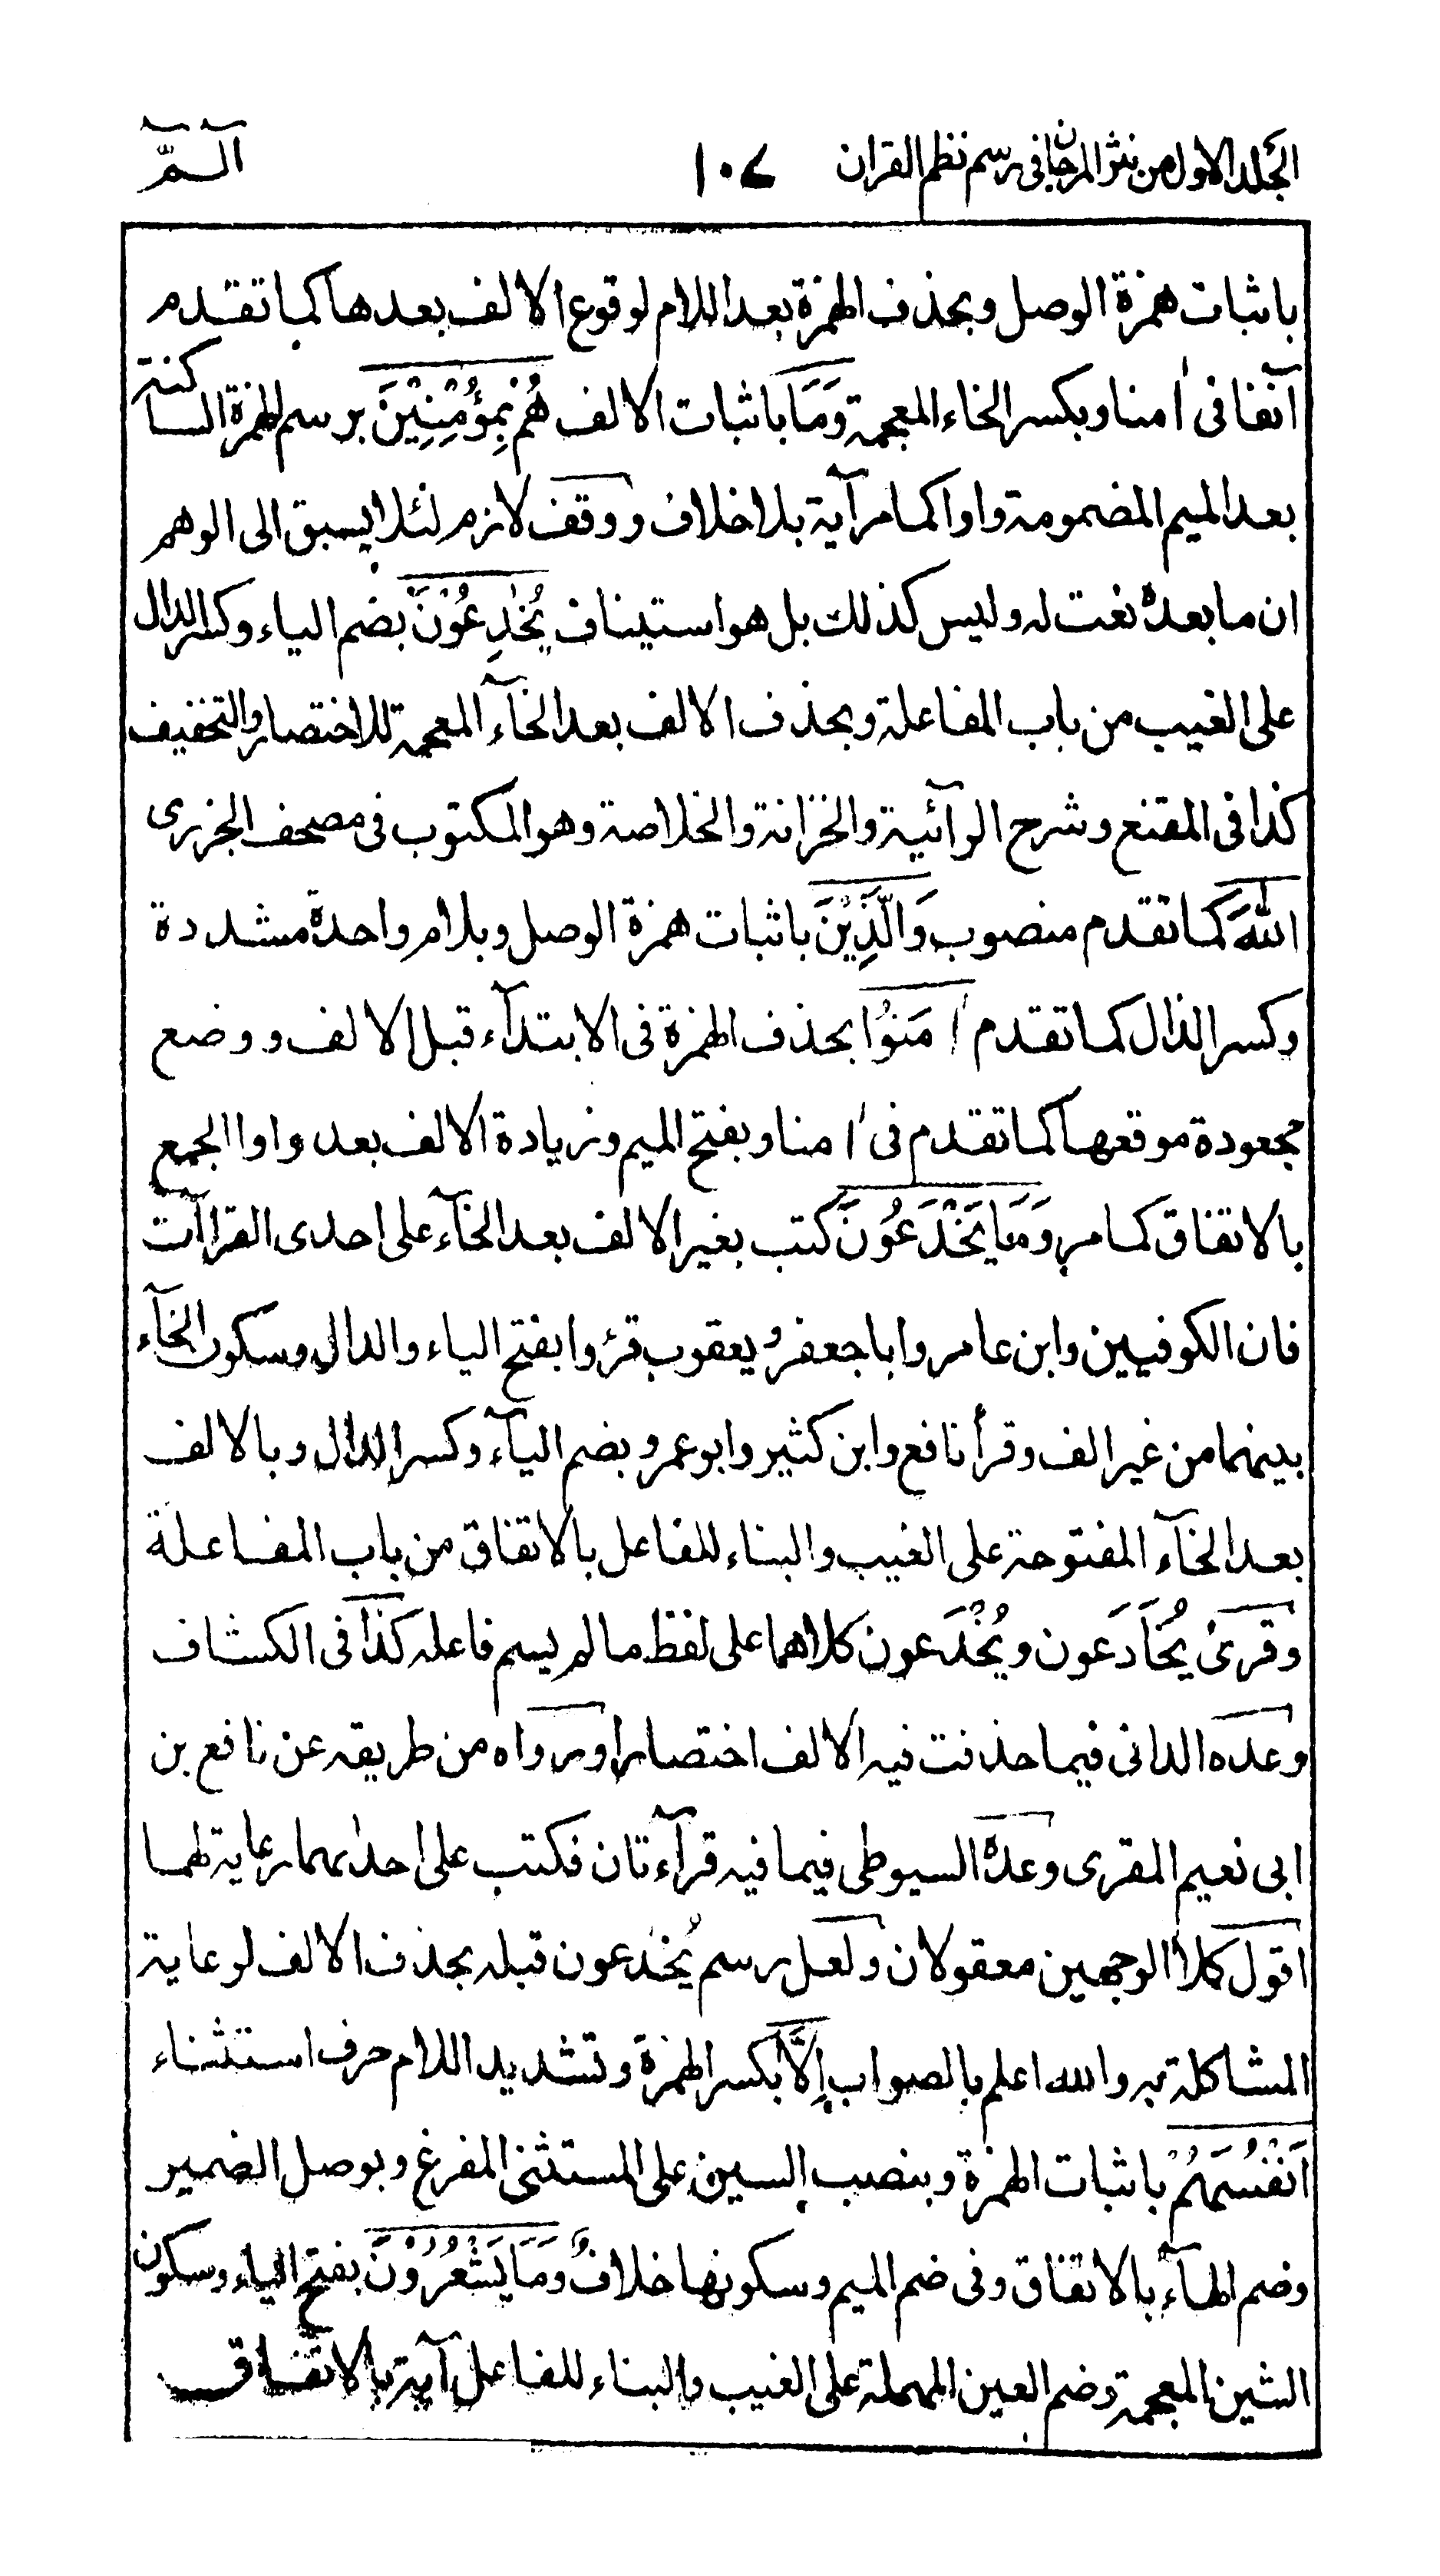 الجلد الاول من نثر المرجان فى رسم نظم القران ١٠٧ الٓـمّٓ
باثبات همزة الوصل وبحذف الهمزة بعد اللام لوقوع الالف بعدها كما تقدم
آنفا فى اٰمنا وبكسر الخاء المعجمة وَمَا باثبات الالف هُمْ بِمُؤْمِنِيْنَ برسم الهمزة الساكنة
بعد الميم المضمومة واوا كما مر آية بلا خلاف ووقف لازم لئلا يسبق الى الوهم
ان ما بعدهٗ نعت له وليس كذلك بل هو استيناف يُخٰدِعُوْنَ بضم الياء وكسر الدال
على الغيب من باب المفاعلة وبحذف الالف بعد الخآء المعجمة للاختصار والتخفيف
كذا فى المقنع وشرح الرآئية والخزانة والخلاصة وهو المكتوب فى مصحف الجزرى
اللّٰهَ كما تقدم منصوب وَالَّذِيْنَ باثبات همزة الوصل وبلام واحدة مشددة
وكسر الذال كما تقدم اٰمَنُوْا بحذف الهمزة فى الابتدآء قبل الالف ووضع
مجعودة موقعها كما تقدم فى اٰمنا وبفتح الميم وزيادة الالف بعد واو الجمع
بالاتفاق كما مر وَمَا يَخْدَعُوْنَ كتب بغير الالف بعد الخآء على احدى القراآت
فان الكوفيين وابن عامر وابا جعفر ويعقوب قرؤا بفتح الياء والدال وسكون الخآء
بينهما من غير الف وقرأ نافع وابن كثير وابو عمرو بضم اليآء وكسر الدال وبالالف
بعد الخآء المفتوحة على الغيب والبناء للفاعل بالاتفاق من باب المفاعلة
وقرئ يُخَادَعون ويُخْدَعون كلاهما على لفظ ما لم يسم فاعله كذا فى الكشاف
وعده الدانى فيما حذفت فيه الالف اختصارا ورواه من طريقه عن نافع بن
ابى نعيم المقرى وعدهٗ السيوطى فيما فيه قرآءتان فكتب على احدٰىهما رعاية لهما
اقول كلا الوجهين معقولان ولعل رسم يُخٰدعون قبله بحذف الالف لرعاية
المشاكلة به والله اعلم بالصواب اِلَّا بكسر الهمزة وتشديد اللام حرف استثناء
اَنْفُسَهُمْ باثبات الهمزة وبنصب السين على المستثنى المفرغ وبوصل الضمير
وضم الهآء بالاتفاق وفى ضم الميم وسكونها خلافٌ وَمَا يَشْعُرُوْنَ بفتح الياء وسكون
الشين المعجمة وضم العين المهملة على الغيب والبناء للفاعل آية بالاتفاق